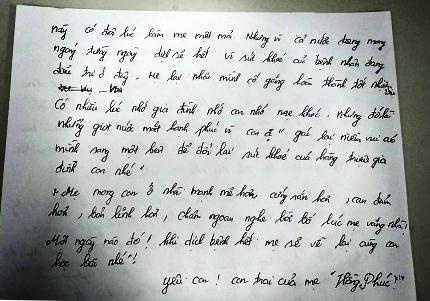 này có đôi lúc làm mẹ mệt mỏi. Nhưng vì cả nước đang mong
ngóng từng ngày dịch sẽ hết vì sức khoẻ của bệnh nhân đang
điều trị ở đây. Mẹ lại nhắc mình cố gắng hoàn thành tốt nhiệm
vụ
Có nhiều lúc nhớ gia đình nhớ con nhớ mẹ khóc. Nhưng đó là
những giọt nước mắt hạnh phúc vì con ơi " gác lại niềm vui của
mình sang một bên để đổi lại sức khoẻ của hàng triệu gia
đình con nhé"
+ Mẹ mong con ở nhà mạnh mẽ hơn, cứng rắn hơn, can đảm
hơn, bản lĩnh hơn, chăm ngoan nghe lời bố lúc mẹ vắng nhà!
Một ngày nào đó! khi dịch bệnh hết mẹ sẽ về lại cùng con
học bài nhé"!
yêu con! con trai của mẹ "Hồng Phúc"